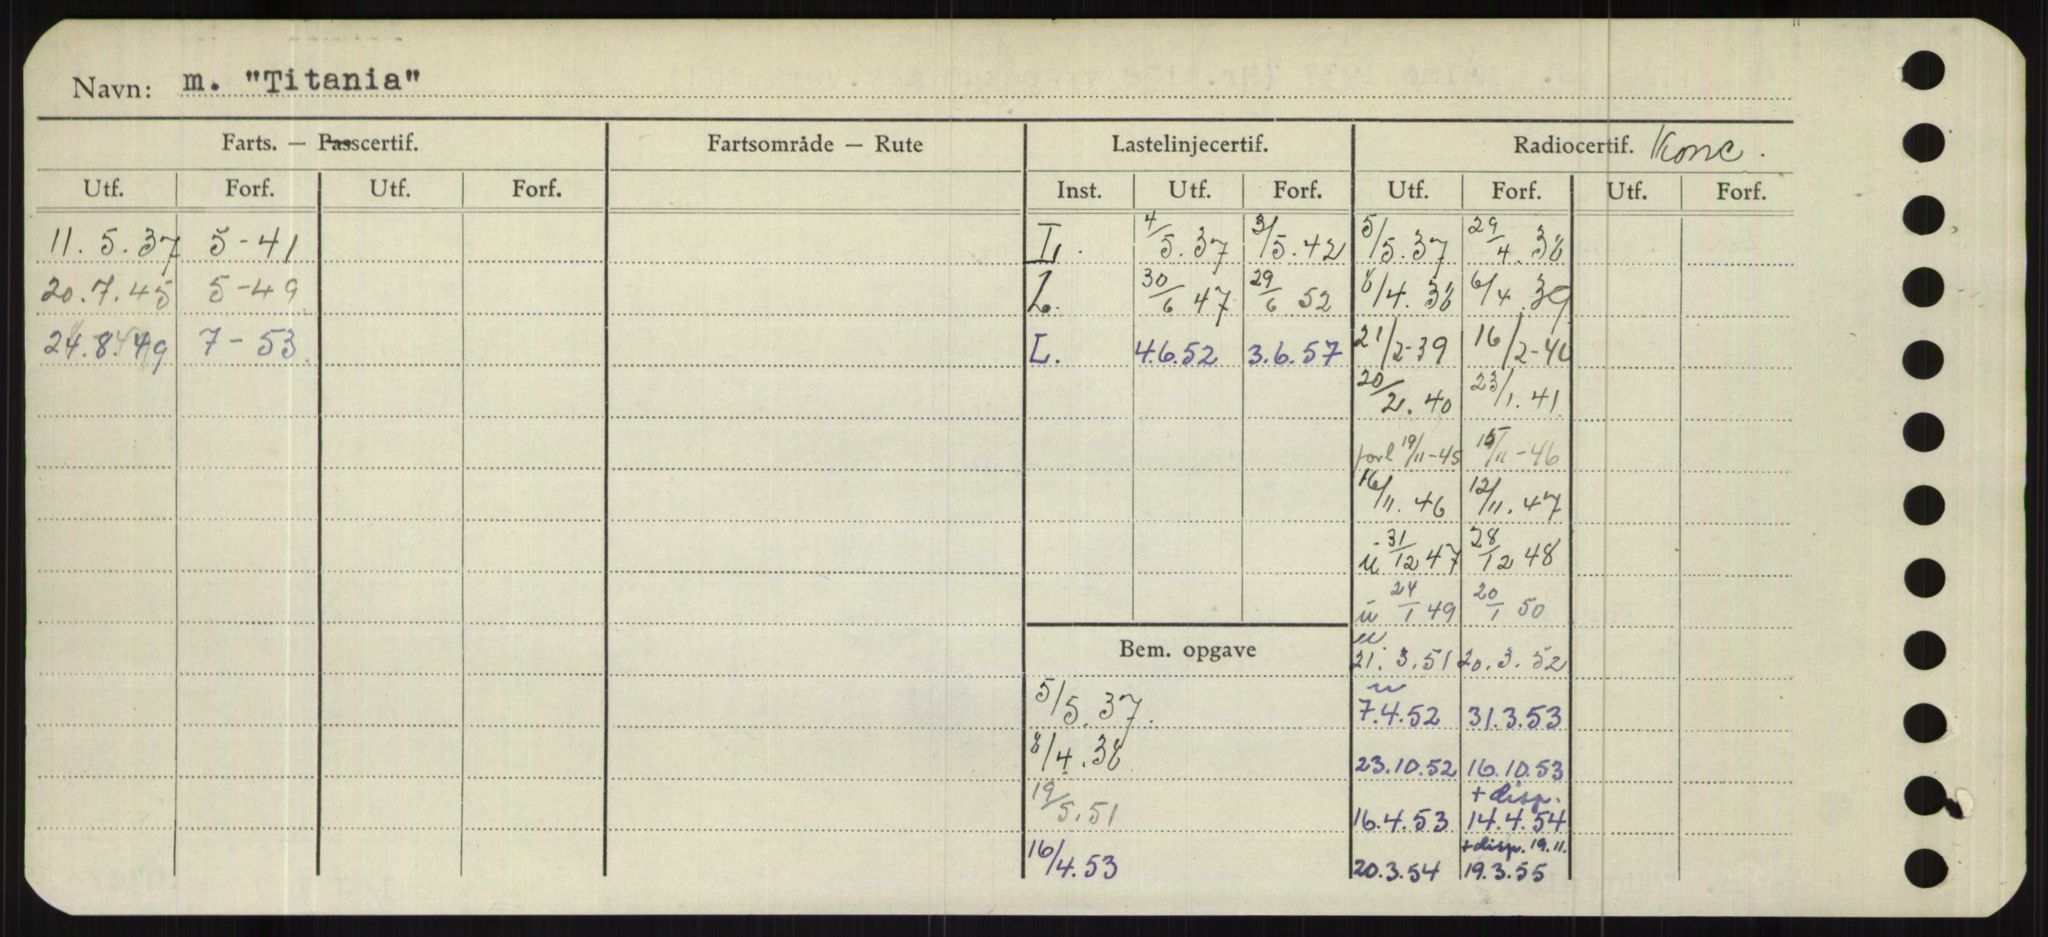 Navn: m. "Titania"
Farts. — Passcertif. Fartsområde — Rute Lastelinjecertif. Radiocertif. Konc.
Utf. Forf. Utf. Forf. Inst. Utf. Forf. Utf. Forf. Utf. Forf.
11.5.37 5-41 L. 4/5.37 3/5.42 5/5.37 29/4.38
20.7.45 5-49 L. 30/6 47 29/6 52 8/4.38 6/4.39
24.8.49 7-53 L. 4.6.52 3.6.57 21/2-39 16/2-40
20/2.40 23/1.41
forl 19/11-45 15/11-46
16/11.46 12/11.47
u 31/12 47 28/12 48
u 24/1 49 20/1 50
Bem. opgave u 21.3.51 20.3.52
5/5.37. u 7.4.52 31.3.53
8/4.38 23.10.52 16.10.53
+ disp.
19/5.51 16.4.53 14.4.54
+ disp. 19.11.
16/4.53 20.3.54 19.3.55